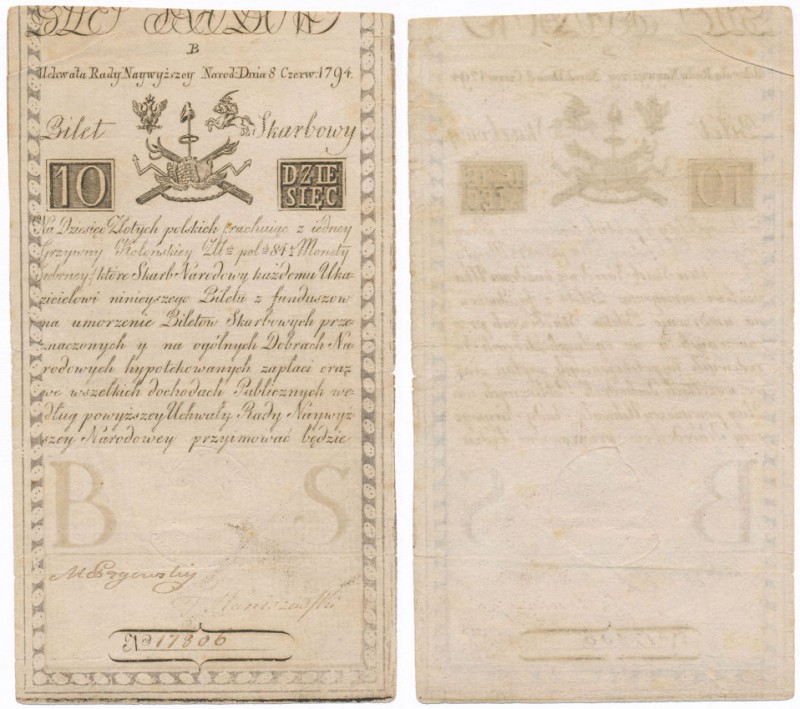 B
Uchwała Rady Naywyższey Narod: Dnia 8 Czerw. 1794.
Bilet Skarbowy
10 DZIE
SIĘC
Na Dziesięć Złotych polskich rachuiąc z iedney
Grzywny Kolońskiey Zł pol 84½ Monety
srebrney; które Skarb Narodowy każdemu Uka
zicielowi ninieyszego Biletu z funduszow
na umorzenie Biletów Skarbowych prze
znaczonych y na ogólnych Dobrach Na
rodowych hypotekowanych zapłaci oraz
we wszelkich dochodach Publicznych we
dług powyższey Uchwały Rady Naywyż
szey Narodowey przyimować będzie
B S
No 17806